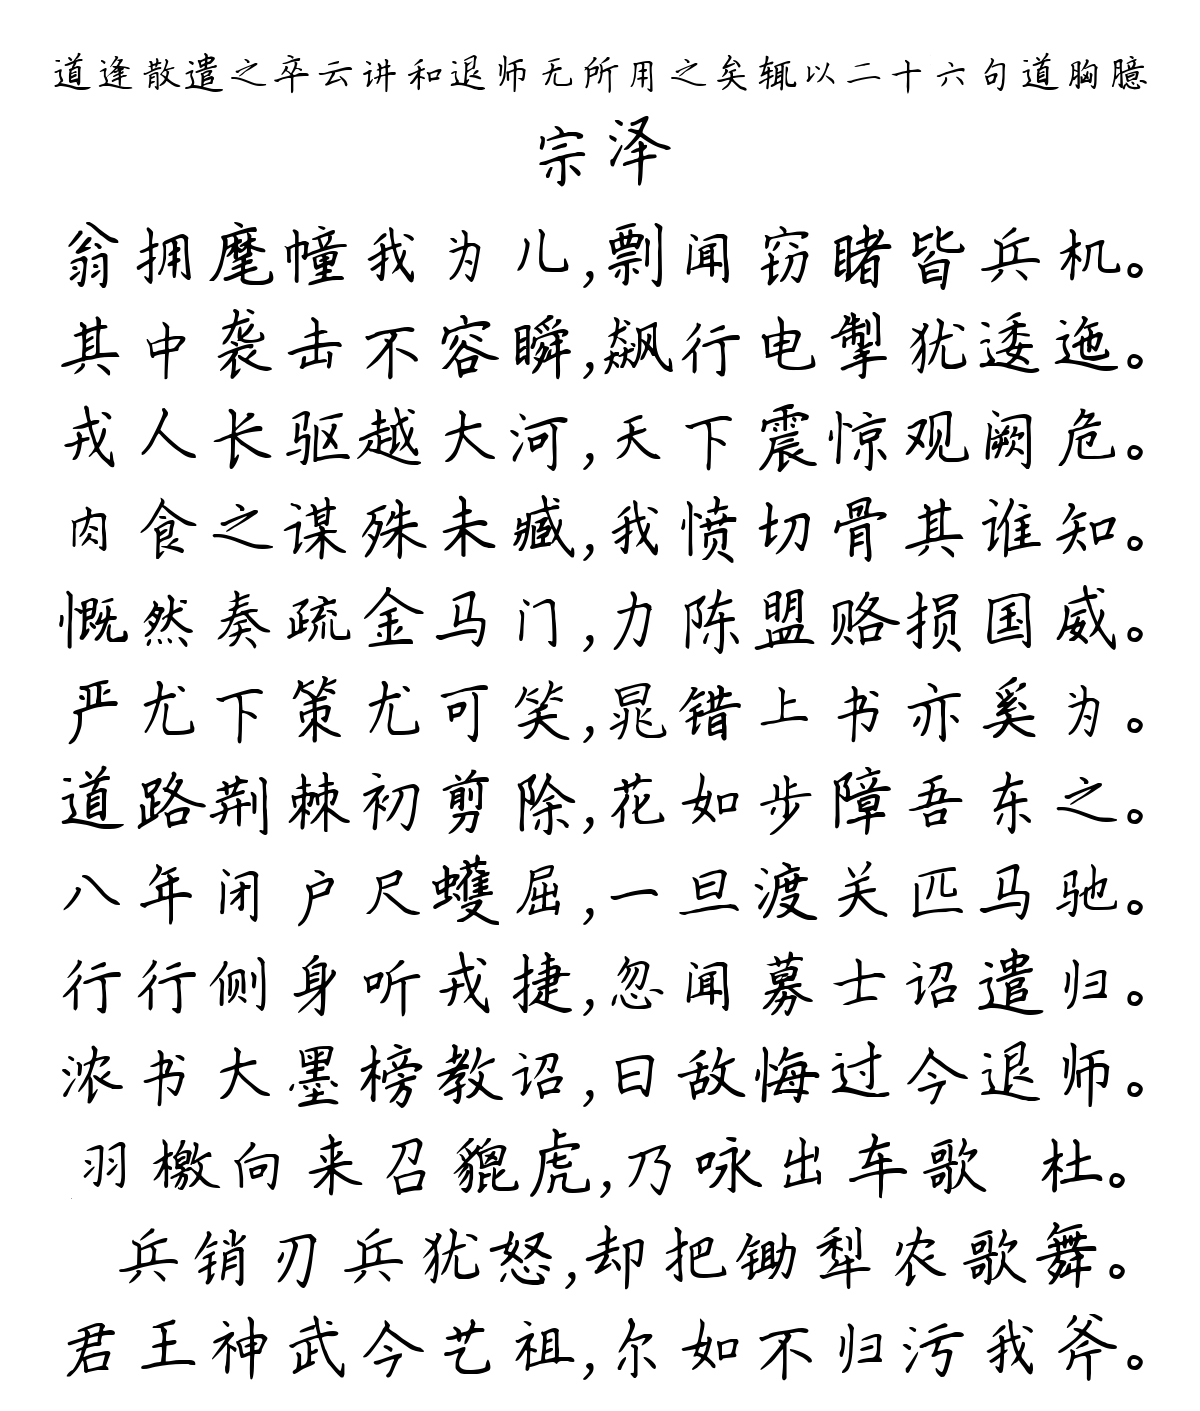 道逢散遣之卒云讲和退师无所用之矣辄以二十六句道胸臆
宗泽
翁拥麾幢我为儿,剽闻窃睹皆兵机。
其中袭击不容瞬,飙行电掣犹逶迤。
戎人长驱越大河,天下震惊观阙危。
肉食之谋殊未臧,我愤切骨其谁知。
慨然奏疏金马门,力陈盟赂损国威。
严尤下策尤可笑,晁错上书亦奚为。
道路荆棘初剪除,花如步障吾东之。
八年闭户尺蠖屈,一旦渡关匹马驰。
行行侧身听戎捷,忽闻募士诏遣归。
浓书大墨榜教诏,曰敌悔过今退师。
羽檄向来召貔虎,乃咏出车歌 杜。
兵销刃兵犹怒,却把锄犁农歌舞。
君王神武今艺祖,尔如不归污我斧。